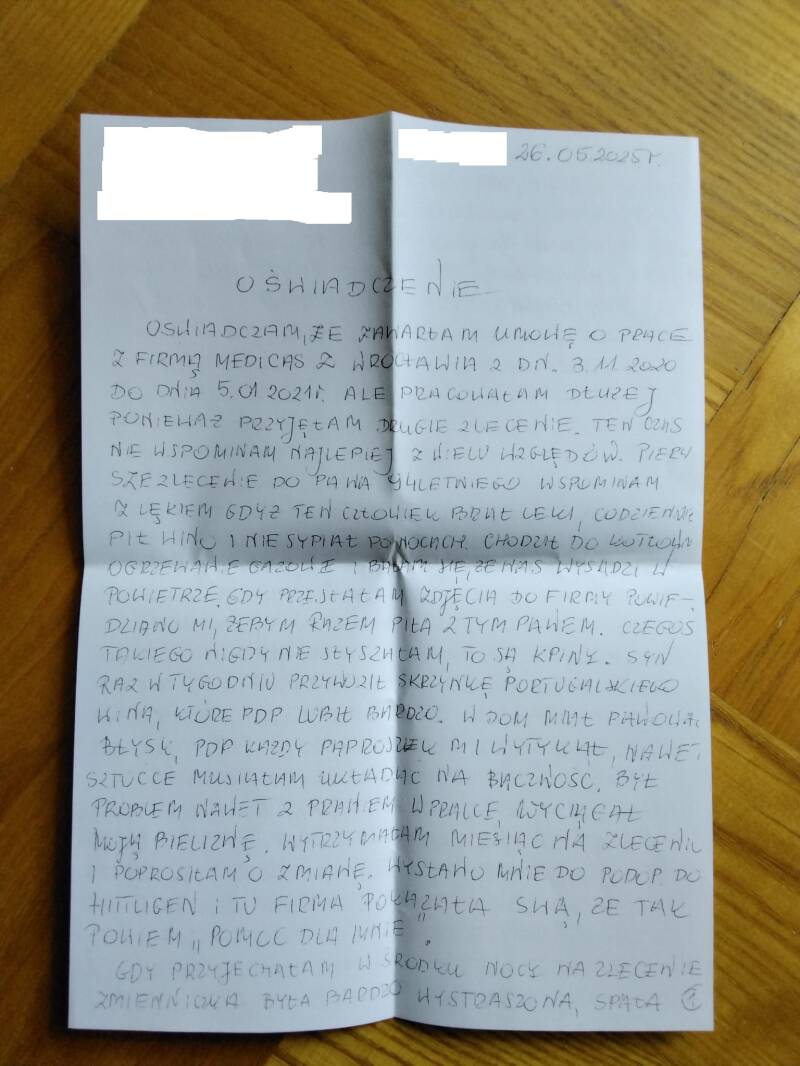 26.05.2025r.
OŚWIADCZENIE
OSWIADCZAM, ŻE ZAWARŁAM UMOWĘ O PRACE
Z FIRMĄ MEDICAS Z WROCŁAWIA Z DN. 3.11 2020
DO DNIA 5.01 2021r. ALE PRACOWAŁAM DŁUŻEJ
PONIEWAŻ PRZYJĘŁAM DRUGIE ZLECENIE. TEN CZAS
NIE WSPOMINAM NAJLEPIEJ Z WIELU WZGLĘDÓW. PIERW
SZE ZLECENIE DO PANA LETNIEGO WSPOMINAM
Z LĘKIEM GDYŻ TEN CZŁOWIEK BRAŁ LEKI, CODZIENNIE
PIŁ WINO I NIE SYPIAŁ PO NOCACH. CHODZIŁ DO KOTŁOWNI
OGRZEWANIE GAZOWE I BAŁAM SIĘ, ŻE NAS WYSADZI W
POWIETRZE. GDY PRZESŁAŁAM ZDJĘCIA DO FIRMY POWIE-
DZIANO MI, ŻEBYM RAZEM PIŁA Z TYM PANEM. CZEGOŚ
TAKIEGO NIGDY NIE SŁYSZAŁAM, TO SĄ KPINY. SYN
RAZ W TYGODNIU PRZYWOZIŁ SKRZYNKĘ PORTUGALSKIEGO
WINA, KTÓRE PDP LUBIŁ BARDZO. W DOM MIAŁ PANOWAĆ
BŁYSK, PDP KAŻDY PAPROSZEK MI WYTYKAŁ, NAWET
SZTUCCE MUSIAŁAM UKŁADAĆ NA BACZNOŚĆ. BYŁ
PROBLEM NAWET Z PRANIEM W PRALCE, WYCIĄGAŁ
MOJĄ BIELIZNĘ. WYTRZYMAŁAM MIESIĄC NA ZLECENIU
I POPROSIŁAM O ZMIANĘ. WYSŁANO MNIE DO PODOP. DO
HITTLIGEN I TU FIRMA POKAZAŁA SWĄ, ŻE TAK
POWIEM „POMOC DLA MNIE".
GDY PRZYJECHAŁAM W ŚRODKU NOCY NA ZLECENIE
ZMIENNICZKA BYŁA BARDZO WYSTRASZONA, SPAŁA 1